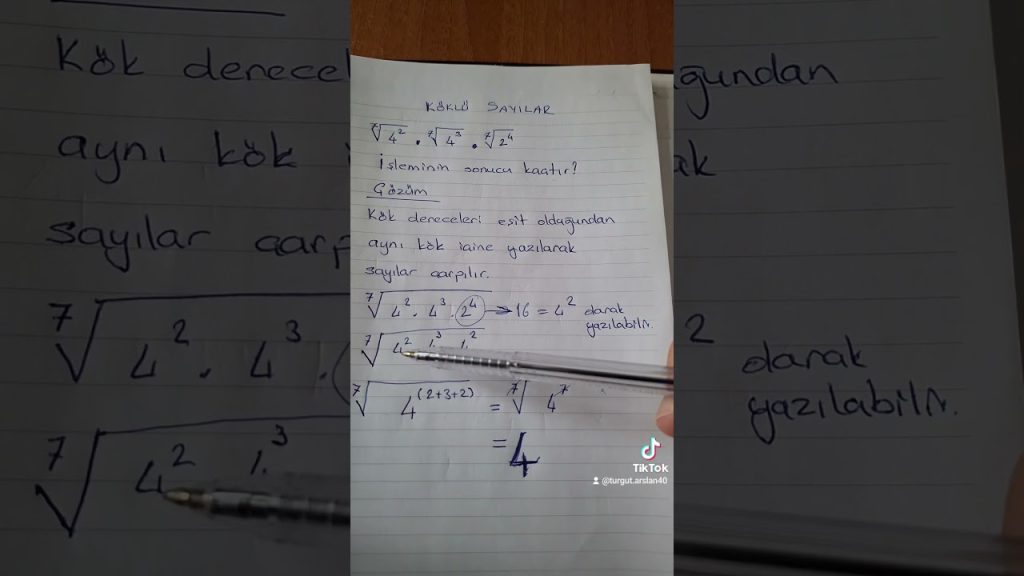 KÖKLÜ SAYILAR
⁷√4² . ⁷√4³ . ⁷√2⁴
İşleminin sonucu kaçtır?
Çözüm
Kök dereceleri eşit olduğundan
aynı kök içine yazılarak
sayılar çarpılır.
⁷√4² . 4³ . 2⁴ → 16 = 4² olarak
yazılabilir.
⁷√4²
⁷√4⁽²⁺³⁺²⁾ = ⁷√4⁷
= 4
TikTok
@turgut.arslan40